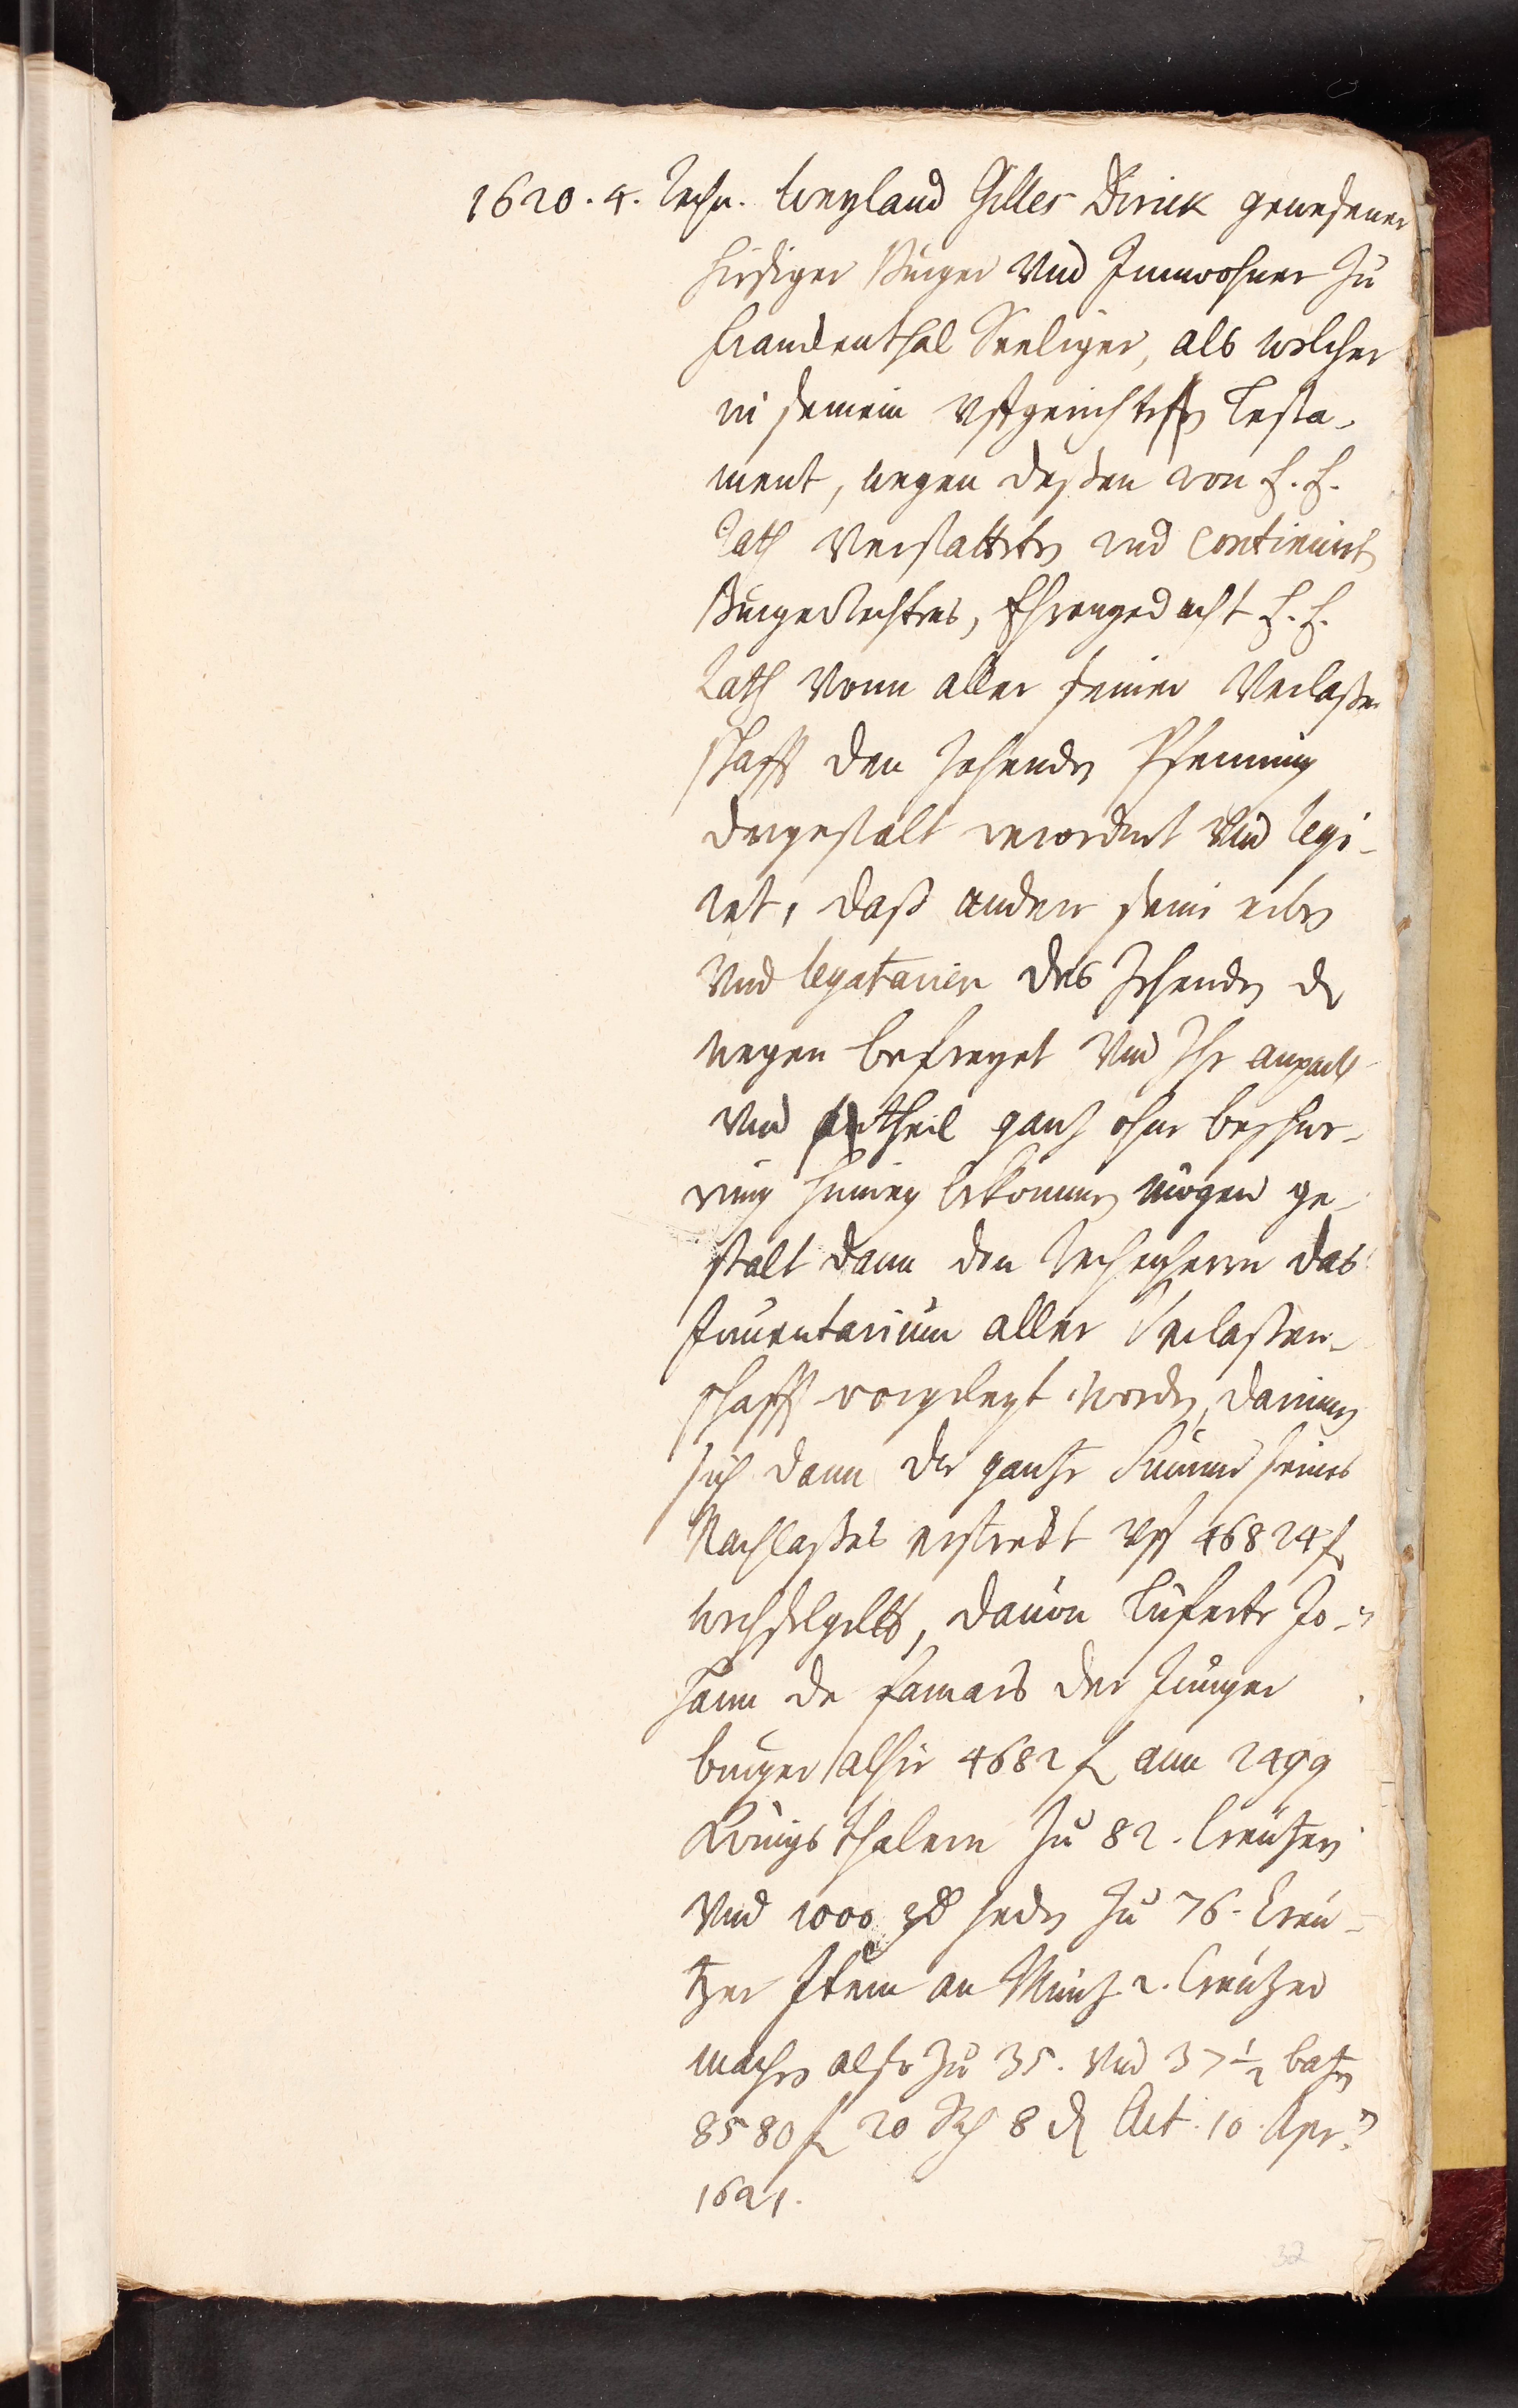 1620. 4. Rechn. Weyland Gilles Dirick gewesener
hiesiger Burger Vnd Innwohner zu
Franckenthal Seeliger, als welcher
in seinem vffgerichteten Testa-
ment, wegen deßen von E. E.
Rath Verstatteten und continuirten
BurgerRechtens, Ehrengedacht E. E.
Rath Vonn aller seiner Verlaßen
schafft den Zehenden Pfenning
dergestalt verordnet Vnd legi-
ret, daß andere seine erben
Vnd legatarien des Zehenden
wegen befreyet Vnd Ihr anpart
Vnd Antheil gantz ohne beschwe-
rung hinweg bekommen mögen ge-
stalt dann den Rechenherrn das
Inuentarium aller Verlaßen-
schafft vorgelegt worden, darinnen
sich dann die gantze Summe seines
Nachlaßes erstreckt vff 46824 fl
wechselgelts, dauon lieferte Jo-
hann de Famars der Junger
burger alhie 4682 fl ann 2499
Königsthalern zu 82. Creutzern
Vnd 1000 jeden zu 76. Creu-
tzer Item an Müntz 2. Creutzer
machen also zu 35. Vnd 37 1/2 batzen
8580 fl 20 ßch 8 d Act. 10. Apr.
1621.
32